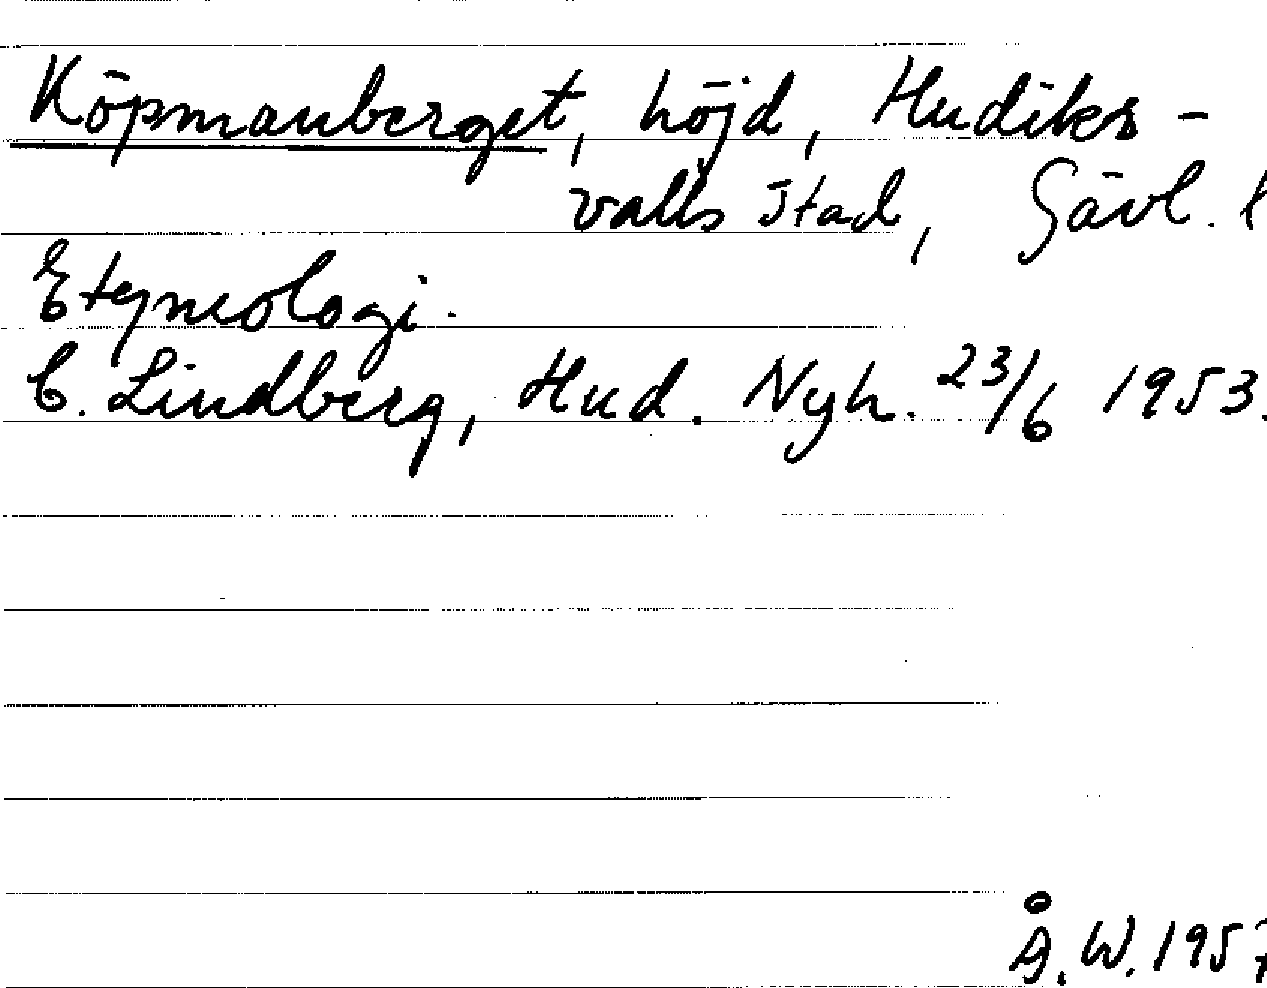 Köpmanberget, höjd, Hudiks-
valls stad, Gävl. l
Etymologi.
C. Lindberg, Hud. Nyh. 23/6 1953.
Å. W. 1957